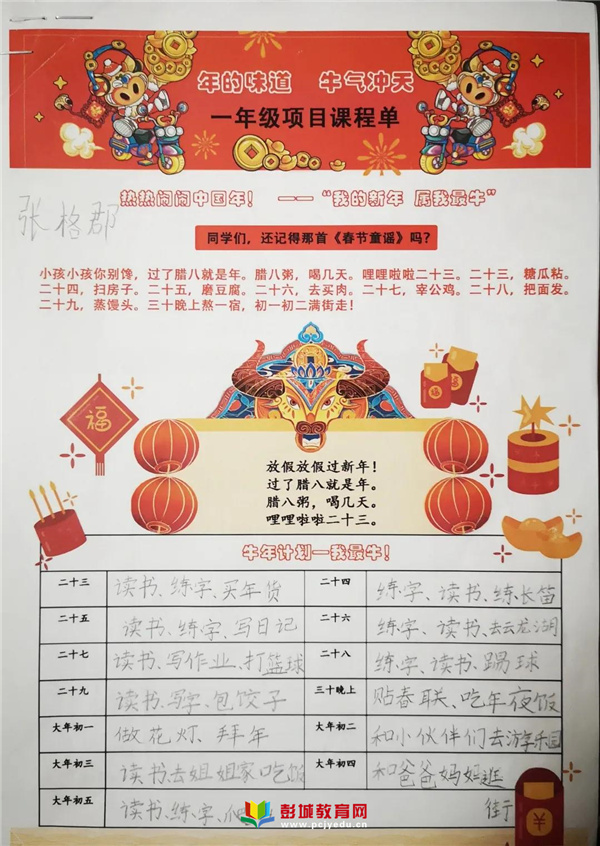 年的味道 牛气冲天
一年级项目课程单
热热闹闹中国年! ——“我的新年 属我最牛”
张格郡
同学们，还记得那首《春节童谣》吗？
小孩小孩你别馋，过了腊八就是年。腊八粥，喝几天。哩哩啦啦二十三。二十三，糖瓜粘。
二十四，扫房子。二十五，磨豆腐。二十六，去买肉。二十七，宰公鸡。二十八，把面发。
二十九，蒸馒头。三十晚上熬一宿，初一初二满街走！
福
放假放假过新年！
过了腊八就是年。
腊八粥，喝几天。
哩哩啦啦二十三。
牛年计划—我最牛！
二十三 读书、练字、买年货 二十四 练字、读书、练长笛
二十五 读书、练字、写日记 二十六 练字、读书、去云龙湖
二十七 读书、写作业、打篮球 二十八 练字、读书、踢球
二十九 读书、写字、包饺子 三十晚上 贴春联、吃年夜饭
大年初一 做花灯、拜年 大年初二 和小伙伴们去游乐园
大年初三 读书去姐姐家吃饭 大年初四 和爸爸妈妈逛
大年初五 读书、练字、 街
彭城教育网
www.pcjyedu.cn